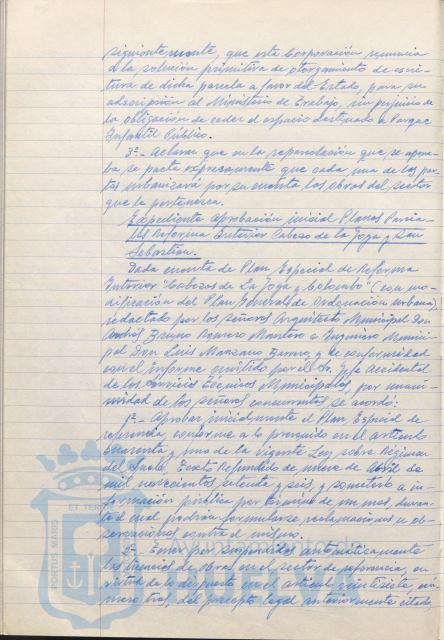 siguientemente, que esta Corporación renuncia
a la solución primitiva de otorgamiento de escri-
tura de dicha parcela a favor del Estado, para su
adscripción al Ministerio de Trabajo, sin perjuicio de
la obligación de ceder el espacio destinado a Parque
Infantil Público.
3º.- Aclarar que en la reparcelación que se aprue-
ba, se pacta expresamente que cada una de las par-
tes urbanizará por su cuenta las obras del sector
que le pertenezca.
Expediente aprobación inicial Planes Parcia-
les Reforma Interior Cabezo de la Joya y San
Sebastián.
Dada cuenta de Plan Especial de Reforma
Interior "Cabezos de La Joya y Colombo" (con mo-
dificación del Plan General de Ordenación Urbana),
redactado por los señores Arquitecto Municipal Don
Andrés Bruno Romero Mantero e Ingeniero Munici-
pal Don Luis Manzano Barrero, y de conformidad
con el informe emitido por el Sr. Jefe Accidental
de los Servicios Técnicos Municipales, por unani-
midad de los señores concurrentes se acordó:
1º.- Aprobar inicialmente el Plan Especial de
referencia, conforme a lo prevenido en el artículo
cuarenta y uno de la vigente Ley sobre Régimen
del Suelo, Texto Refundido de nueve de Abril de
mil novecientos setenta y seis, y someterlo a in-
formación pública por término de un mes, duran-
te el cual podrán formularse reclamaciones u ob-
servaciones contra el mismo.
2º.- Tener por suspendidas automáticamente
las licencias de obras en el sector de referencia, en
virtud de lo dispuesto en el artículo veintisiete, nú-
mero tres, del precepto legal anteriormente citado,
PORTUS MARIS ET TERRAE